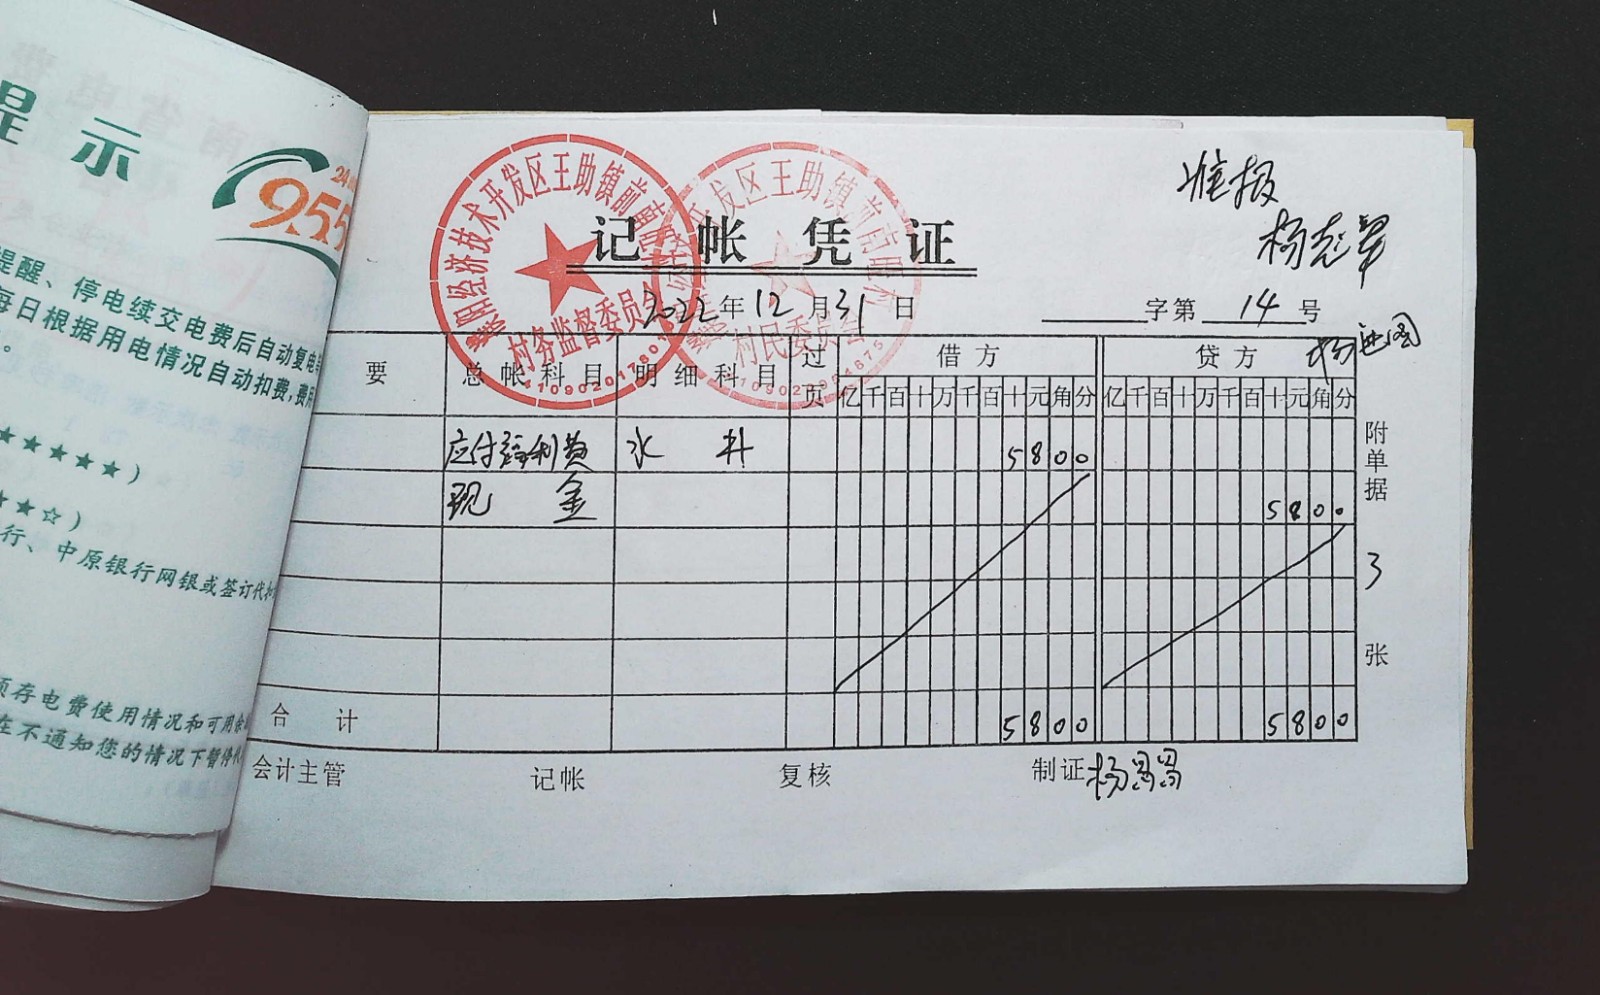 提 示
24
955
提醒、停电续交电费后自动复电
每日根据用电情况自动扣费,费用
。
★★★★★)
★★☆)
行、中原银行网银或签订代扣
预存电费使用情况和可用余
在不通知您的情况下暂停
准报
杨志军
经济技术开发区王助镇前南
村务监督委员会
开发区王助镇前南旺村
村民委员会
记 帐 凭 证
2022年12月31日
字第 14 号
要 总帐科目 明细科目 过页 借方 贷方
亿千百十万千百十元角分 亿千百十万千百十元角分
应付福利费 水 井 5800
现 金 5800
合 计 5800 5800
附单据 3 张
会计主管 记帐 复核 制证